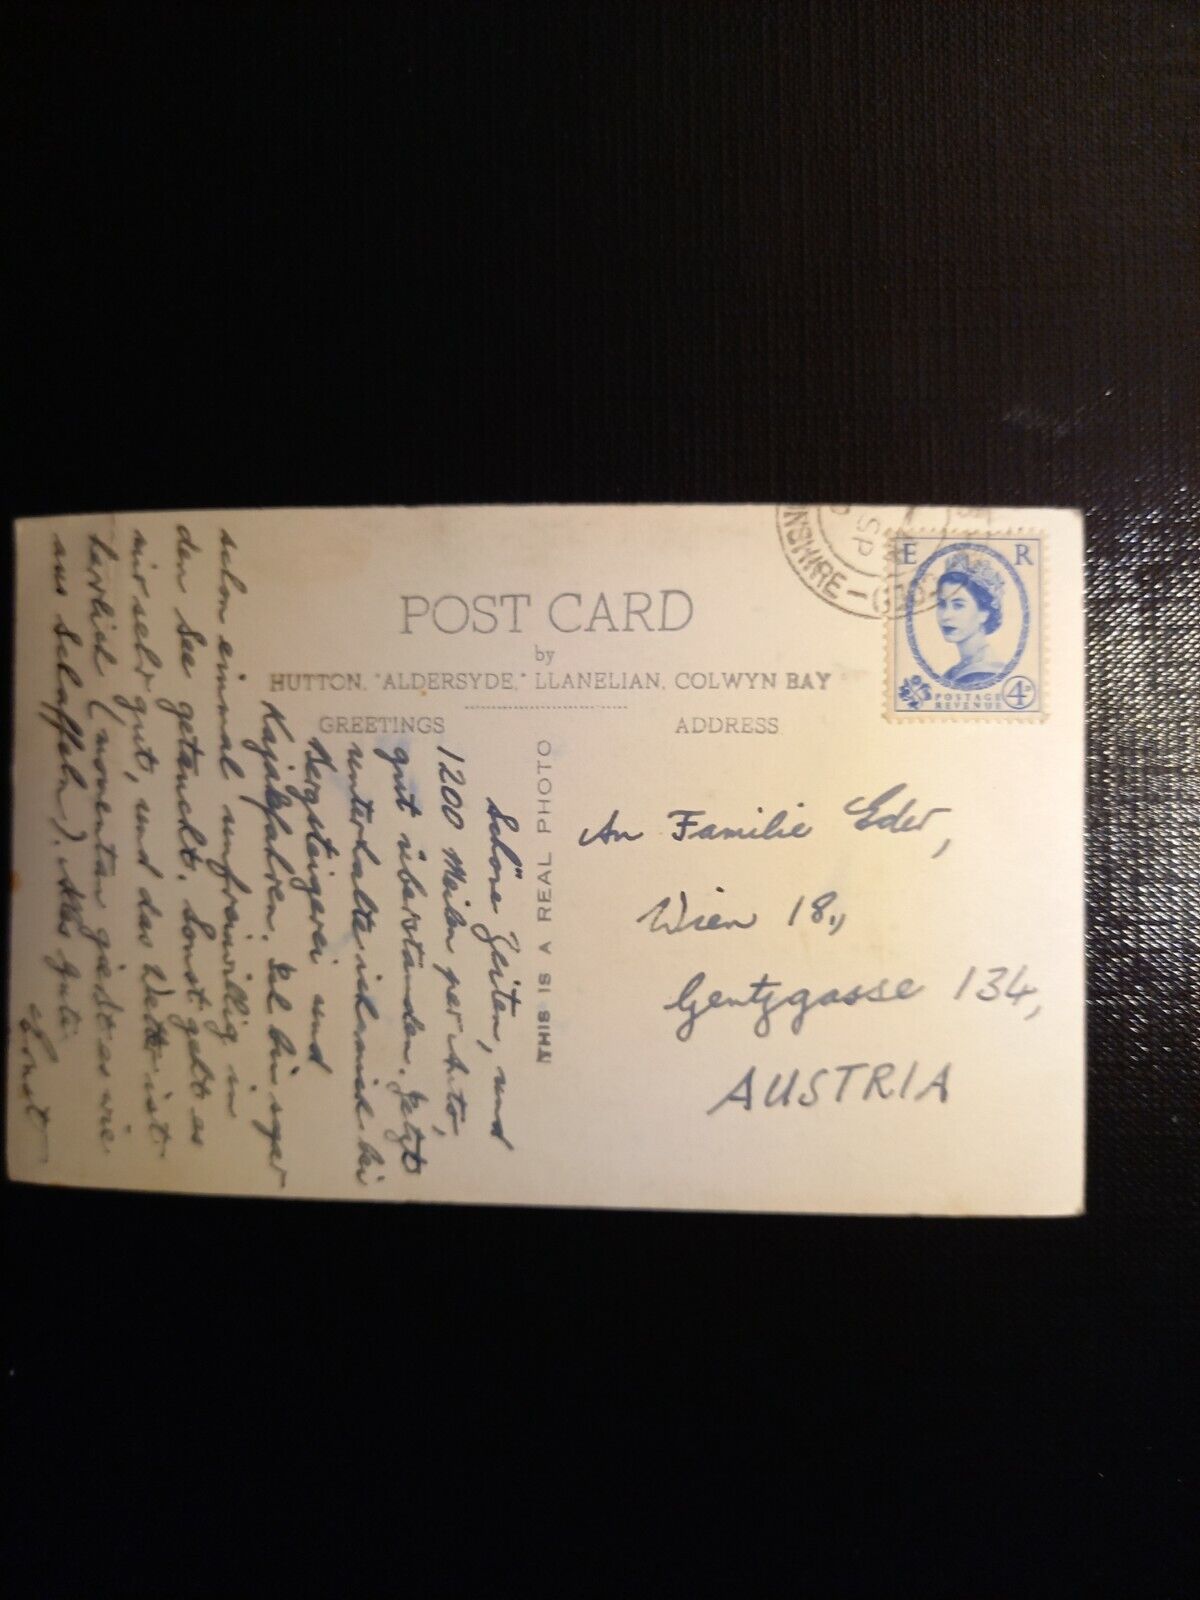 POST CARD
by
HUTTON, "ALDERSYDE," LLANELIAN, COLWYN BAY
GREETINGS
ADDRESS
THIS IS A REAL PHOTO
Schöne Zeiten, und
1200 Meilen per Auto,
gut überstanden. Jetzt
unterhalte ich mich bei
Bergsteigerei und
Kajakfahren. Ich bin sogar
schon einmal unfreiwillig in
den See getaucht. Sonst geht es
mir sehr gut, und das Wetter ist
herrlich (momentan gießt es wie
aus Schaffeln). Alles Gute
Ernst
An Familie Eder,
Wien 18.,
Gentzgasse 134,
AUSTRIA
E R
POSTAGE
REVENUE
4D
SP